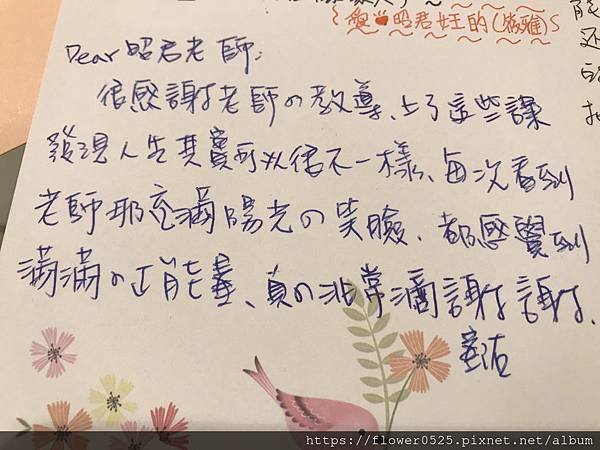 愛昭君女王的(筱雅)S
Dear 昭君老師:
很感謝老師の教導、上了這些課
發現人生其實可以很不一樣、每次看到
老師那充滿陽光の笑臉、都感覺到
滿滿の正能量、真の非常滴謝謝、
https://flower0525.pixnet.net/album